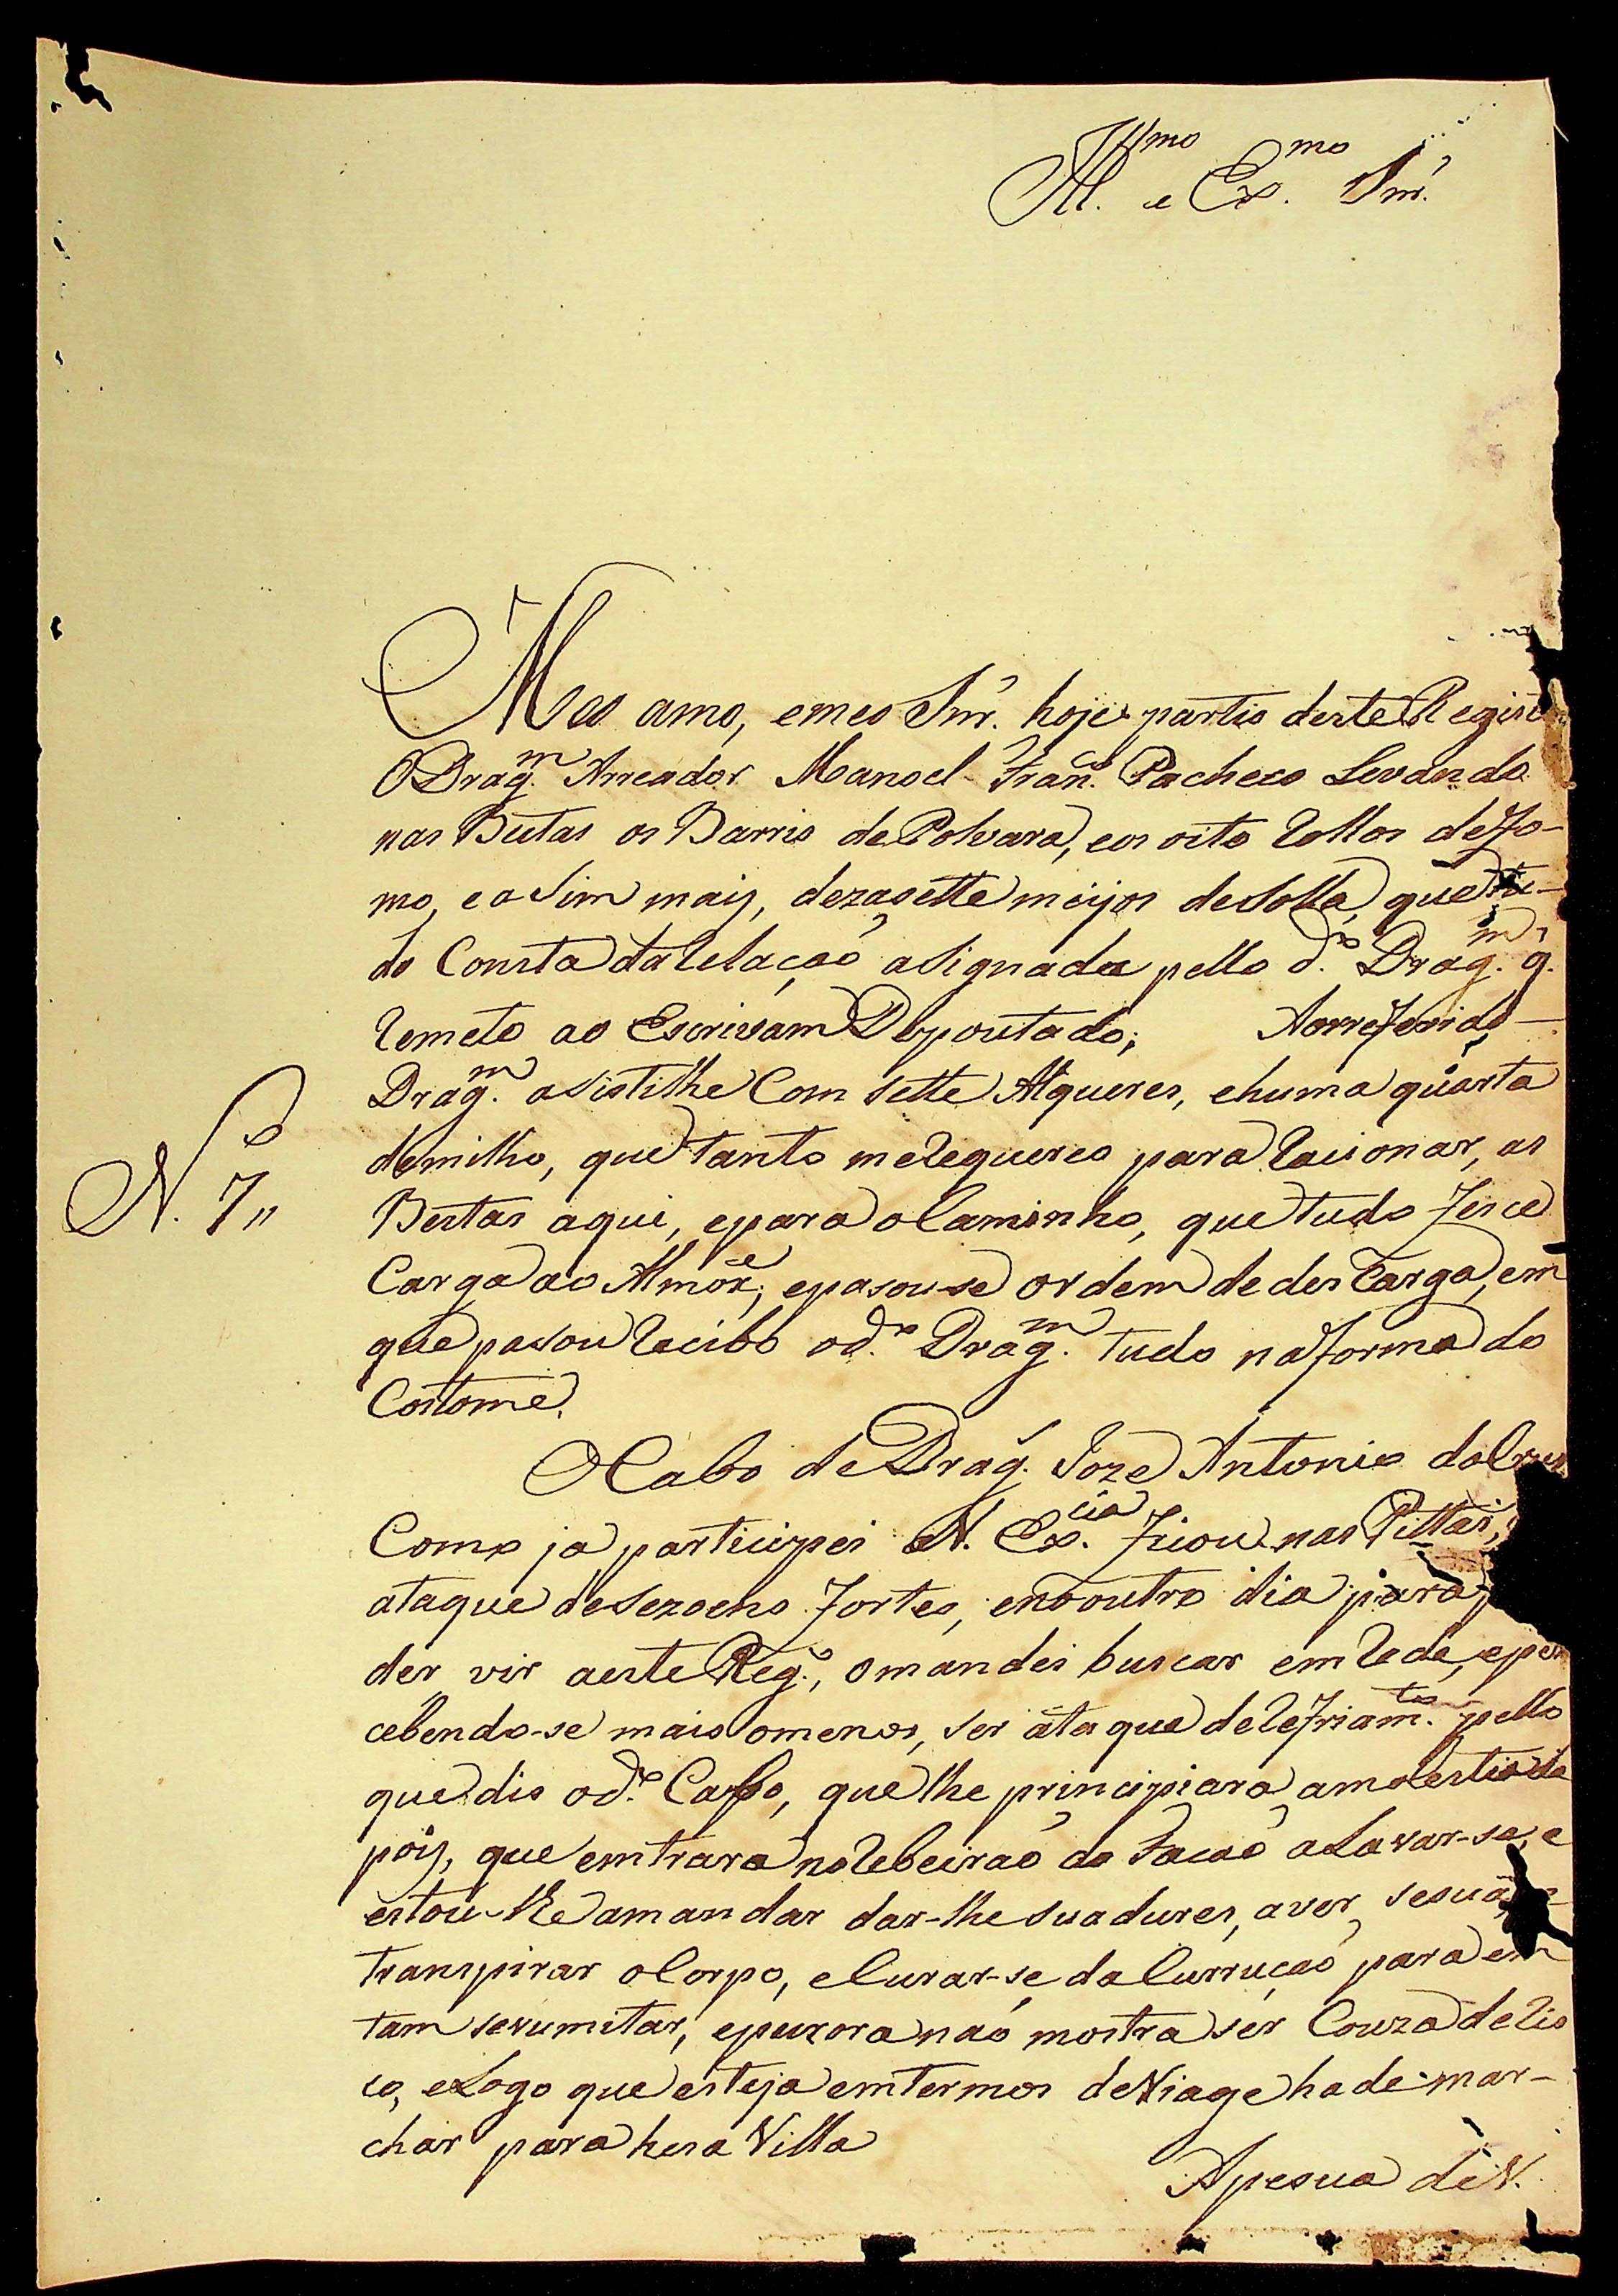 Ill.mo e Ex.mo Snr.
Meo amo, emeo Snr. hoje partio deste Regist
O Drag.m Ameador Manoel Fran.co Pacheco Levando
nas Bestas os Barris de Polvara, eos oito Rollos defo-
mo, easim mais, dezasette meijos desolla, que tu-
do Consta da Relação asignada pello d.o Drag.m q.
Remeto ao Escrivam Deputado; Aorreferido
Drag.m asistilhe Com sette Alqueres, ehuma quarta
demilho, que tanto me requereo para Racionar, as
N.o 7"
Bestas aqui, epara oCaminho, que tudo fesce
Carga ao Almox.e; epasou-se ordem de desCarga, em
que pasou Recibo od.o Drag.m tudo naforma do
Costome.
OCabo de Drag. Joze Antonio da Crus
Como ja participei a V. Ex.cia ficou nas Pittas,
ataque desezoens fortes, enooutro dia para
der vir aeste Reg.o, omandei buscar em Rede, eper
cebendo-se mais omenos, ser ataque de Resfriam.to pello
que dis od.o Cabo, que lhe principiara amolestia de
pois, que emtrara no Rebeirão do Facão aLavar-se, e
estou-lhe amandar dar-lhe suadures, aver, se
transpirar oCorpo, eCurar-se da Curruçaó para em
tam sevumitar, epurora não mostra ser Couza de Ris
co, eLogo que esteja emtermos de Viage hade mar-
char para hesa Villa
Apesua de V.